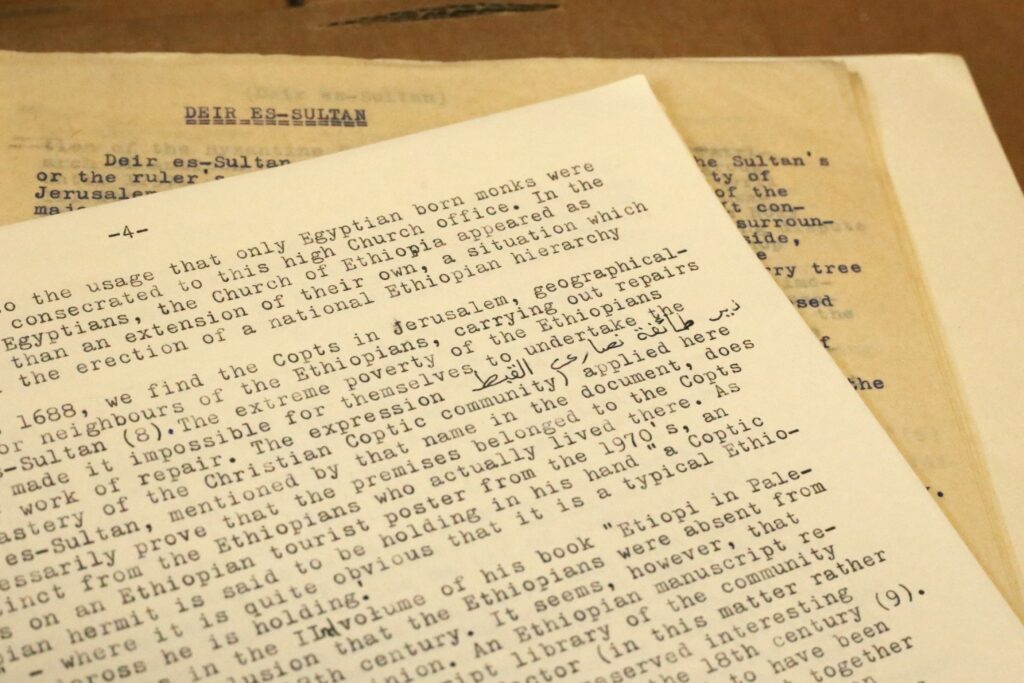 (Deir es-Sultan)
DEIR ES-SULTAN
Deir es-Sultan he Sultan's
or the ruler's ty of
Jerusalem of the
t con-
surroun-
side,
rry tree
sed
the
-4-
o the usage that only Egyptian born monks were
consecrated to this high Church office. In the
Egyptians, the Church of Ethiopia appeared as
than an extension of their own, a situation which
the erection of a national Ethiopian hierarchy
1688, we find the Copts in Jerusalem, geographical-
or neighbours of the Ethiopians, carrying out repairs
s-Sultan (8).The extreme poverty of the Ethiopians
made it impossible for themselves to undertake the
work of repair. The expression دير طائفة نصارى القبط
astery of the Christian Coptic community) applied here
es-Sultan, mentioned by that name in the document, does
essarily prove that the premises belonged to the Copts
tinct from the Ethiopians who actually lived there. As
s on an Ethiopian tourist poster from the 1970's, an
pian hermit is said to be holding in his hand "a Coptic
- where it is quite obvious that it is a typical Ethio-
cross he is holding.
s in the IInd volume of his book "Etiopi in Pale-
lusion that the Ethiopians were absent from
8th century. It seems, however, that
nion. An Ethiopian manuscript re-
ript library of the community
ctor (in this matter rather
reserved interesting
the 18th century (9).
to have been
together